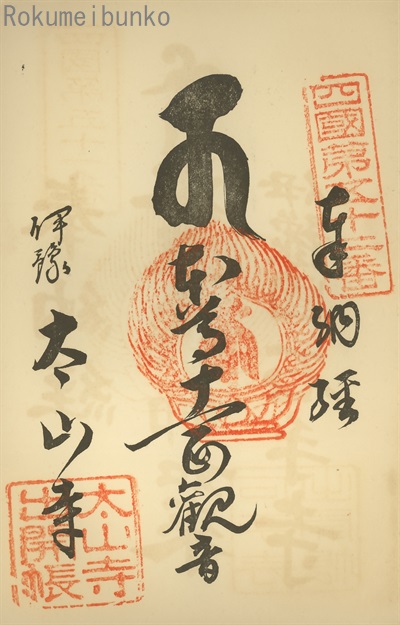 Rokumeibunko
四國第五十二番
奉納經
本尊十一面觀音
伊豫
太山寺
太山寺
出開帳